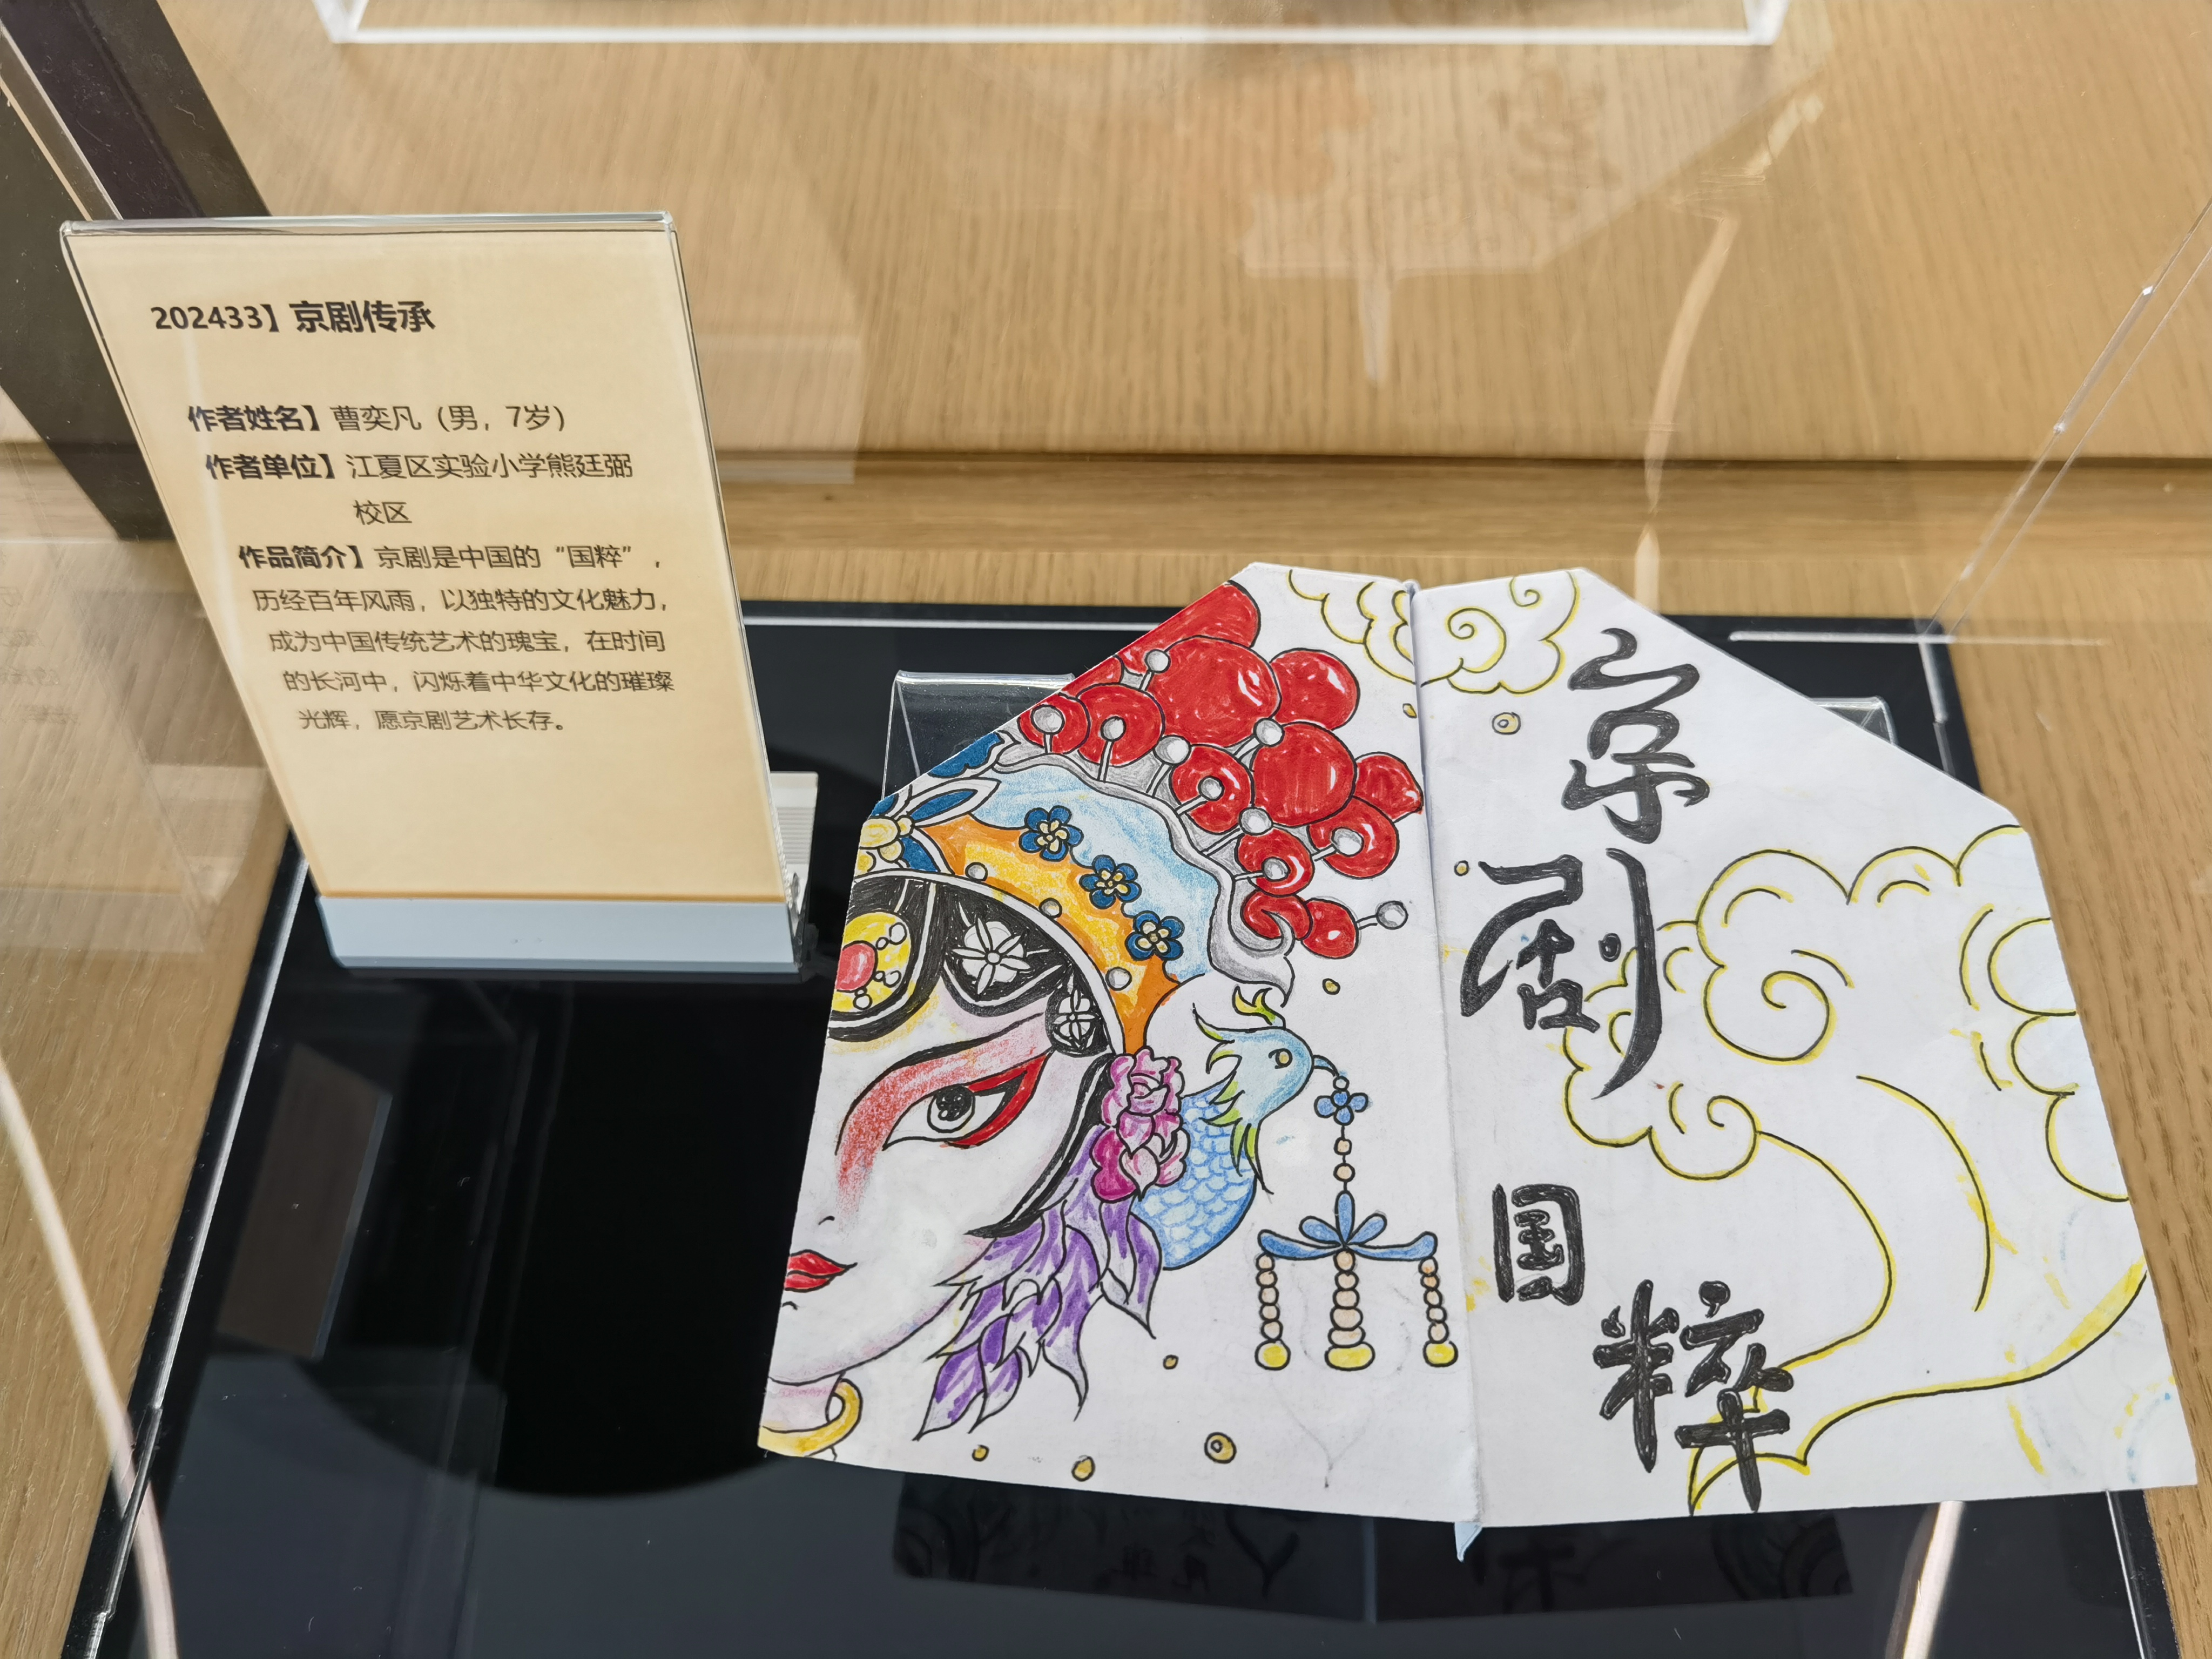 202433】京剧传承
作者姓名】曹奕凡（男，7岁）
作者单位】江夏区实验小学熊廷弼
校区
作品简介】京剧是中国的“国粹”，
历经百年风雨，以独特的文化魅力，
成为中国传统艺术的瑰宝，在时间
的长河中，闪烁着中华文化的璀璨
光辉，愿京剧艺术长存。
京剧
国粹